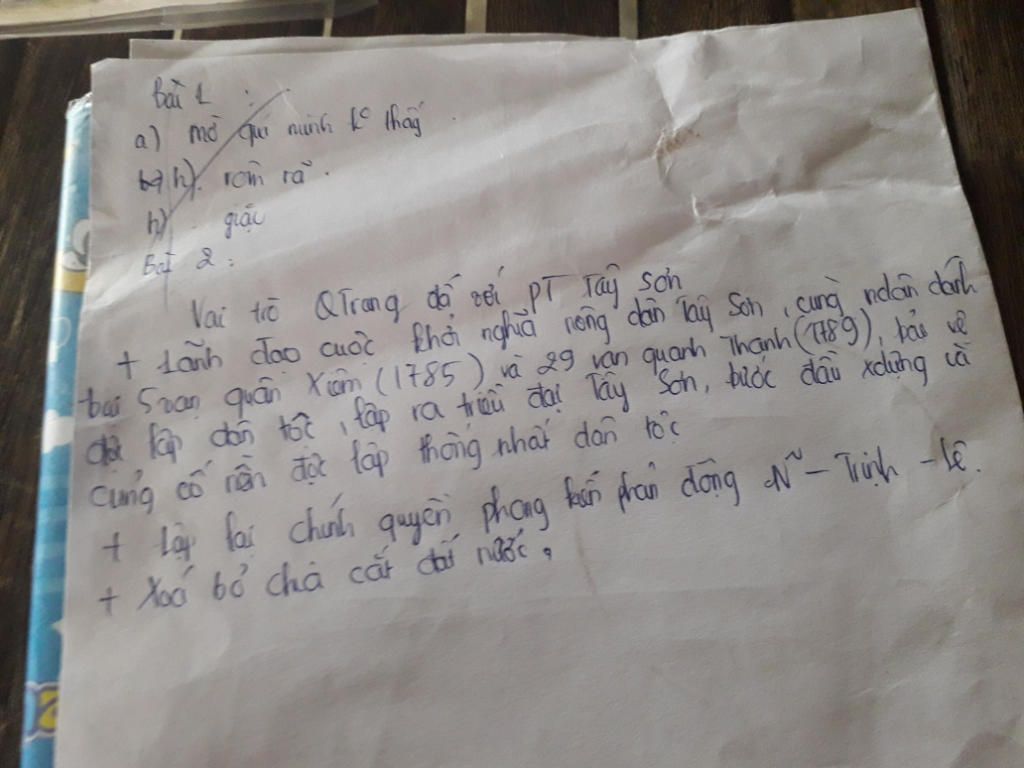 Bài 1 :
a) mò quí mình k° thấy
h). rôm rả.
h) giặc
Bài 2 :
Vai trò QTrang đố với PT Tây Sơn
+ Lãnh đạo cuộc khởi nghĩa nông dân Tây Sơn, cùng ndân đánh
bại 5 vạn quân Xiêm (1785) và 29 vạn quanh Thanh (1789), bảo vệ
độc lập dân tộc, lập ra triều đại Tây Sơn, bước đầu xdựng và
củng cố nền độc lập thống nhất dân tộc
+ Lập lại chính quyền phong kiến phản động N~ - Trịnh - Lê.
+ Xoá bỏ chia cắt đất nước.